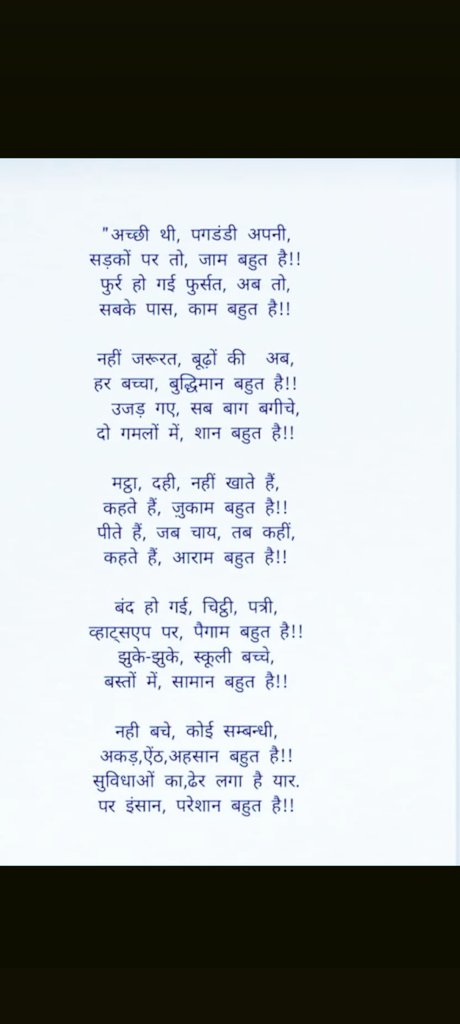 "अच्छी थी, पगडंडी अपनी,
सड़कों पर तो, जाम बहुत है!!
फुर्र हो गई फुर्सत, अब तो,
सबके पास, काम बहुत है!!
नहीं जरूरत, बूढ़ों की अब,
हर बच्चा, बुद्धिमान बहुत है!!
उजड़ गए, सब बाग बगीचे,
दो गमलों में, शान बहुत है!!
मट्ठा, दही, नहीं खाते हैं,
कहते हैं, ज़ुकाम बहुत है!!
पीते हैं, जब चाय, तब कहीं,
कहते हैं, आराम बहुत है!!
बंद हो गई, चिट्ठी, पत्री,
व्हाट्सएप पर, पैगाम बहुत है!!
झुके-झुके, स्कूली बच्चे,
बस्तों में, सामान बहुत है!!
नही बचे, कोई सम्बन्धी,
अकड़,ऐंठ,अहसान बहुत है!!
सुविधाओं का,ढेर लगा है यार.
पर इंसान, परेशान बहुत है!!